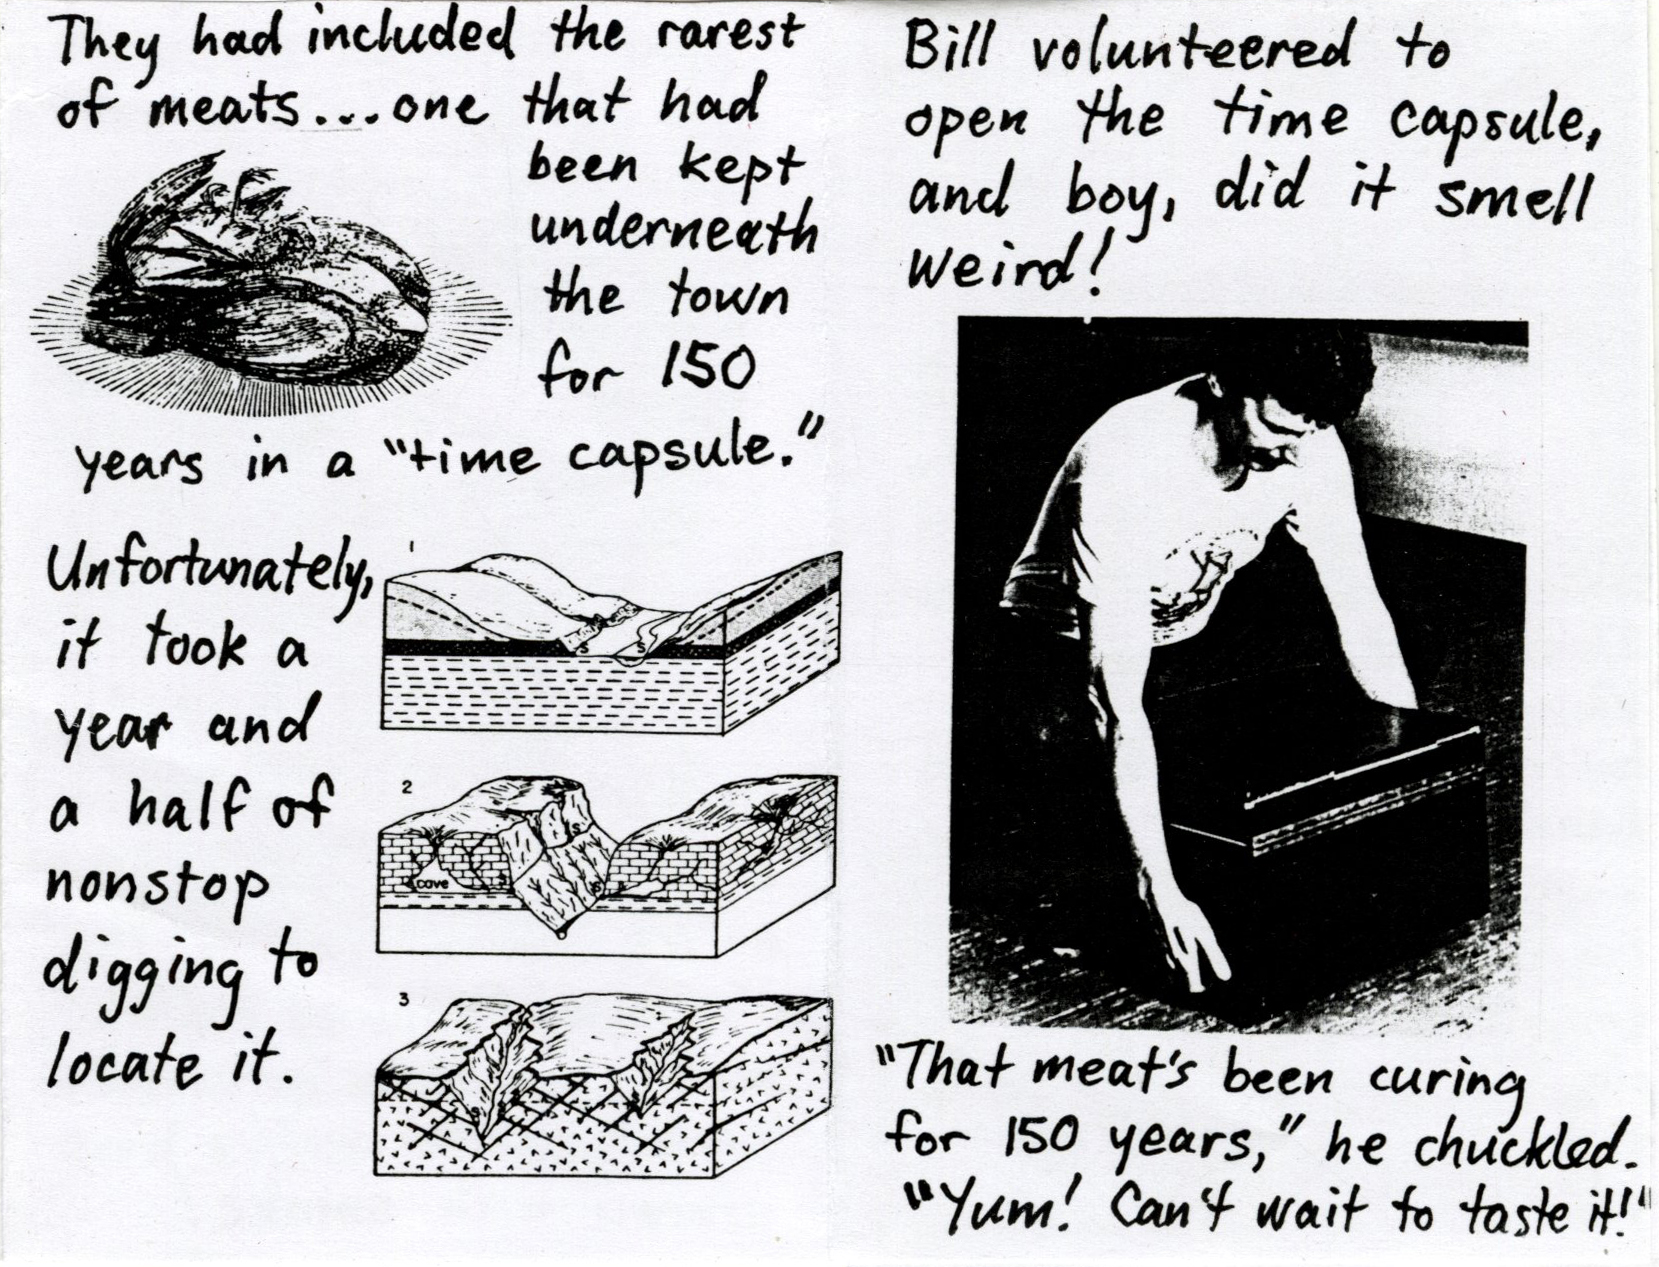 They had included the rarest
of meats...one that had
been kept
underneath
the town
for 150
years in a "time capsule."
Unfortunately,
it took a
year and
a half of
nonstop
digging to
locate it.
1
S S
2
S
cave S S
3
S S
Bill volunteered to
open the time capsule,
and boy, did it smell
weird!
"That meat's been curing
for 150 years," he chuckled.
"Yum! Can't wait to taste it!"